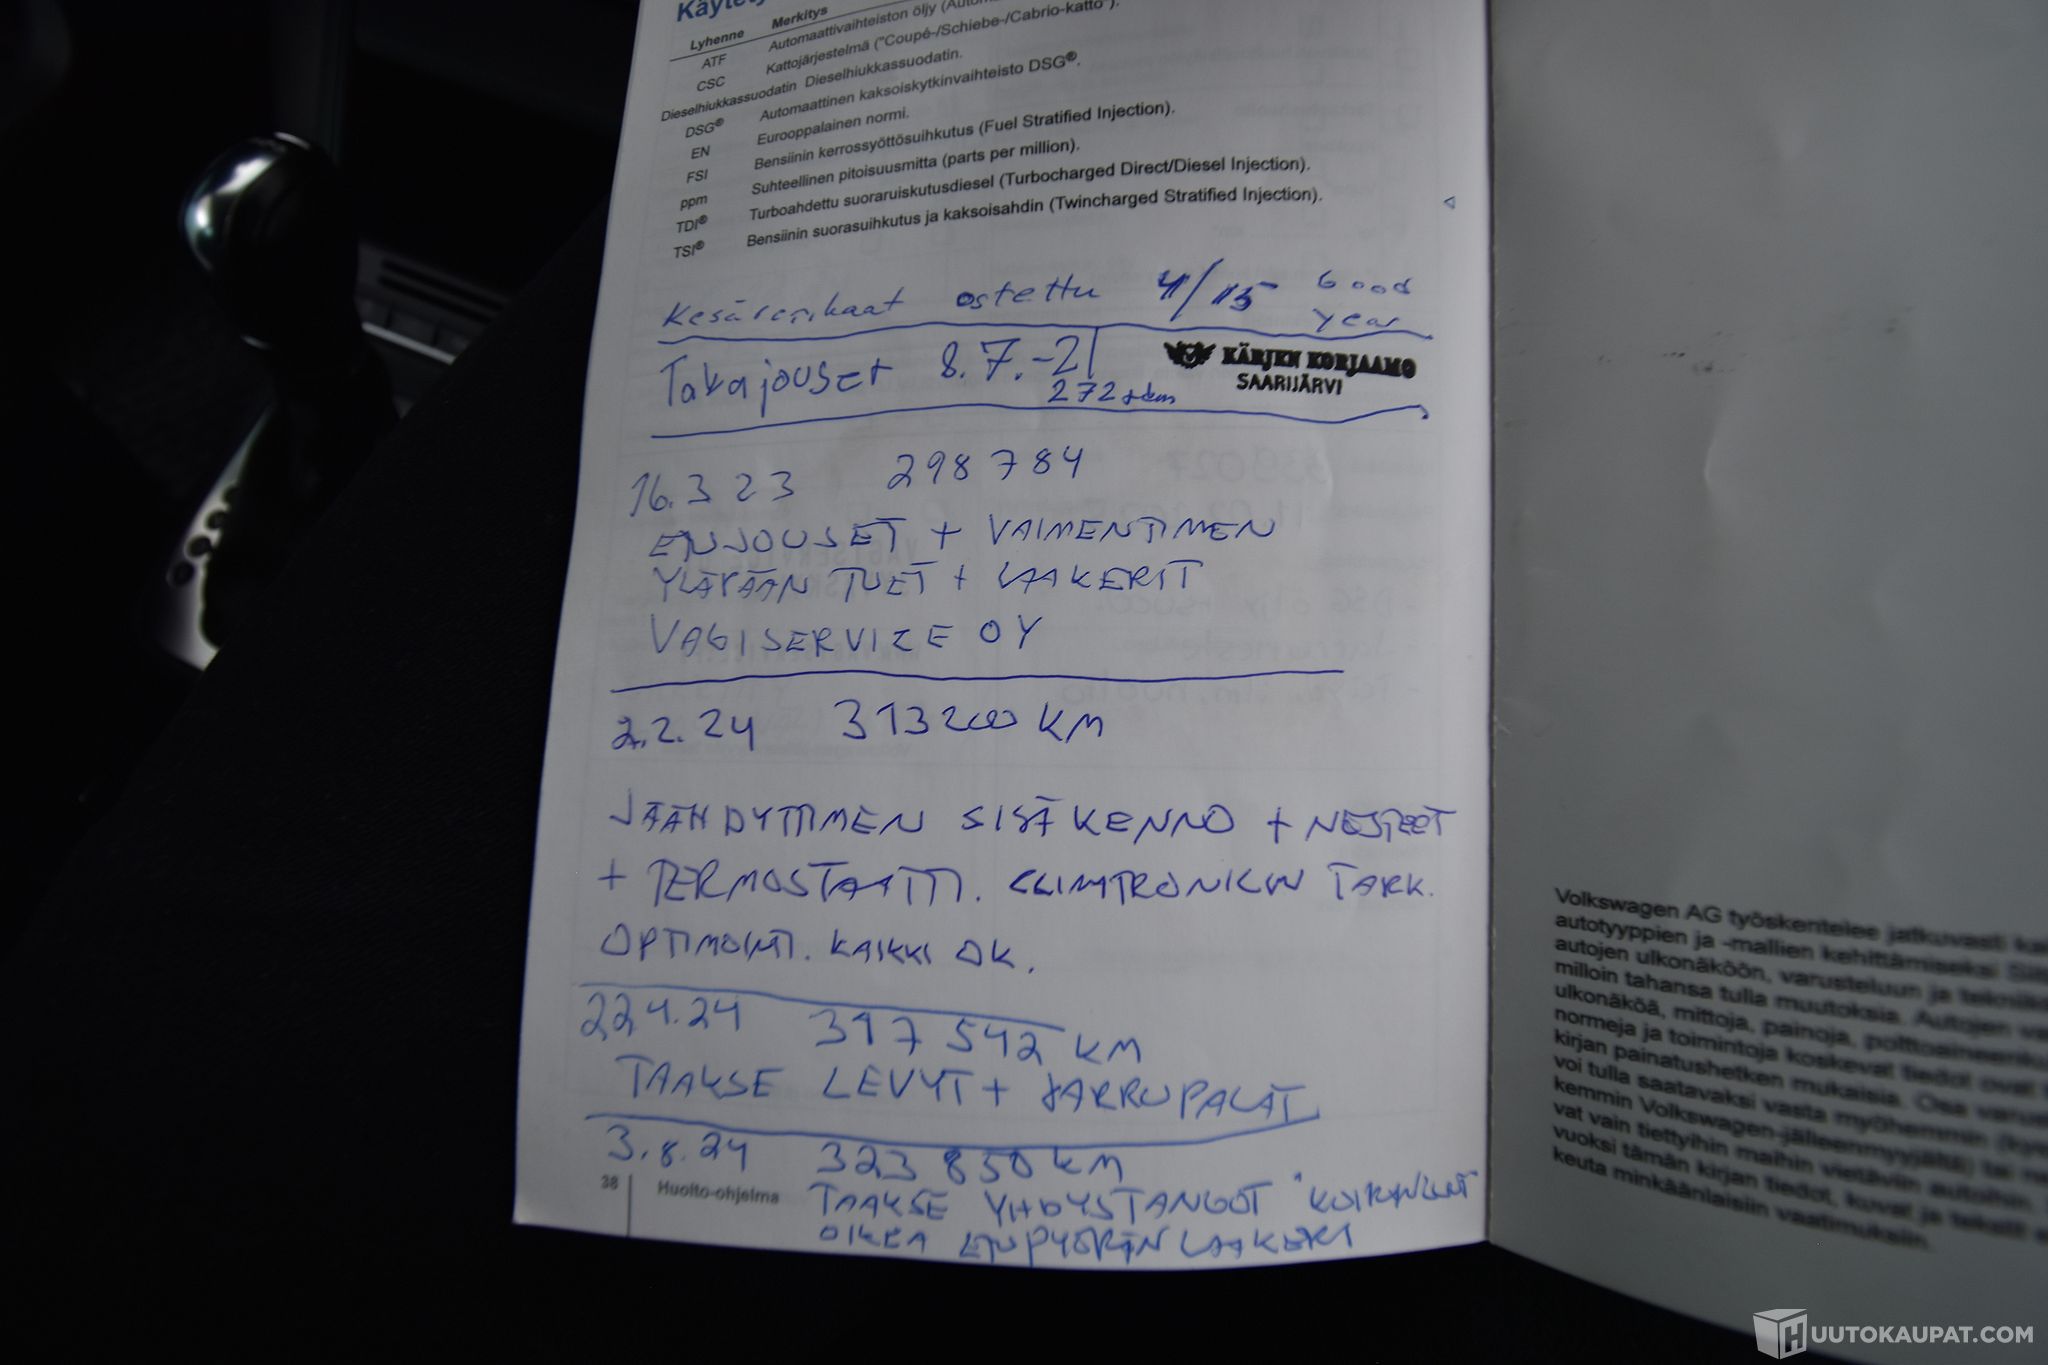 Lyhenne Merkitys
ATF Automaattivaihteiston öljy
CSC Kattojärjestelmä ("Coupé-/Schiebe-/Cabrio-katto").
Dieselhiukkassuodatin Dieselhiukkassuodatin.
DSG® Automaattinen kaksoiskytkinvaihteisto DSG®.
EN Eurooppalainen normi.
FSI Bensiinin kerrossyöttösuihkutus (Fuel Stratified Injection).
ppm Suhteellinen pitoisuusmitta (parts per million).
TDI® Turboahdettu suoraruiskutusdiesel (Turbocharged Direct/Diesel Injection).
TSI® Bensiinin suorasuihkutus ja kaksoisahdin (Twincharged Stratified Injection).
Kesärenkaat ostettu 4/15 Good
year
Takajouset 8.7.-21
272 tkm
KÄRJEN KORJAAMO
SAARIJÄRVI
16.3 23 298 784
ETUJOUSET + VAIMENTIMEN
YLÄPÄÄN TUET + LAAKERIT
VAGISERVICE OY
2.2.24 313200 KM
JÄÄHDYTTIMEN SISÄKENNO + NESTEET
+ TERMOSTAATTI. CLIMATRONICIN TARK.
OPTIMOINTI. KAIKKI OK.
22.4.24 317 542 KM
TAAKSE LEVYT + JARRUPALAT
3.8.24 323 850 KM
TAAKSE YHDYSTANGOT "KOIRANLUUT"
OIKEA ETUPYÖRÄN LAAKERI
38 Huolto-ohjelma
Volkswagen AG työskentelee jatkuvasti
autotyyppien ja -mallien kehittämiseksi
autojen ulkonäköön, varusteluun ja
milloin tahansa tulla muutoksia. Autojen
ulkonäköä, mittoja, painoja,
normeja ja toimintoja koskevat tiedot ovat
kirjan painatushetken mukaisia. Osa
voi tulla saatavaksi vasta myöhemmin
kemmin Volkswagen-jälleenmyyjältä) tai
vat vain tiettyihin maihin vietäviin autoihin.
vuoksi tämän kirjan tiedot, kuvat ja tekstit
keuta minkäänlaisiin vaatimuksiin.
HUUTOKAUPAT.COM